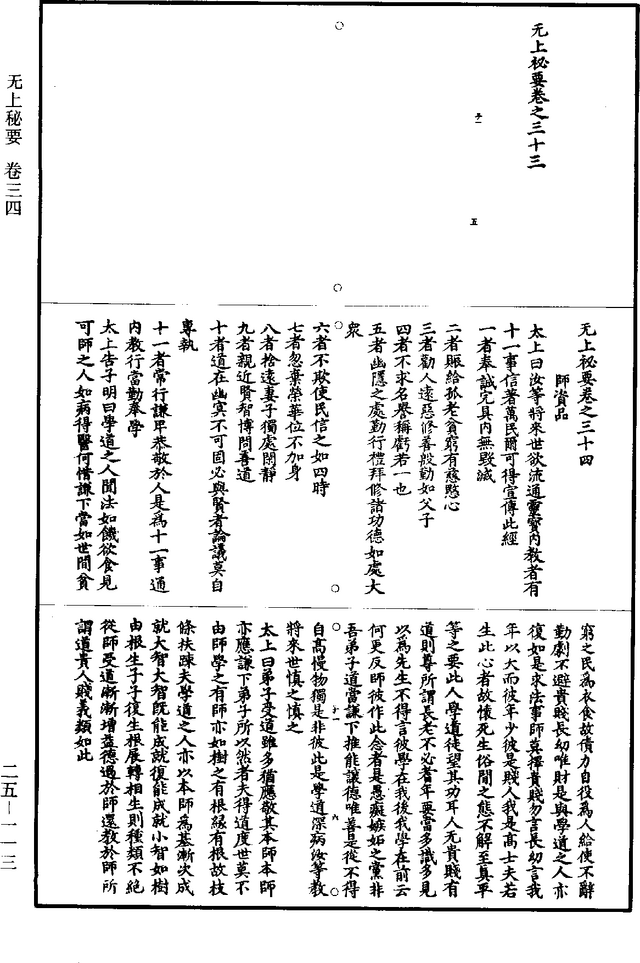 无上秘要 卷三四
二五—一一三
无上祕要卷之三十三
子一
五
无上祕要卷之三十四
師資品
太上曰汝等將來世欲流通靈寶內教者有
十一事信著萬民爾可得宣傳此經
一者奉誠完具內無毀滅
二者賑給孤老貧窮有慈愍心
三者勸人遠惡修善殷勤如父子
四者不求名譽稱虧若一也
五者幽隱之處勤行禮拜修諸功德如處大
衆
六者不欺使民信之如四時
七者忽棄榮華位不加身
八者捨遠妻子獨處閑靜
九者親近賢智博問善道
十者道在幽寞不可固必與賢者論議莫自
專執
十一者常行謙卑恭敬於人是爲十一事通
內教行當勤奉學
太上告子明曰學道之人聞法如饑欲食見
可師之人如病得醫何惜謙下當如世間貧
窮之民爲衣食故債力自役爲人給使不辭
勤劇不避貴賤長幼唯財是與學道之人亦
復如是求法事師莫擇貴賤勿言長幼言我
年以大而彼年少彼是賤人我是高士夫若
生此心者故懷死生俗間之態不解至真平
等之要此人學道徒望其功耳人无貴賤有
道則尊所謂長老不必耆年要當多識多見
以爲先生不得言彼學在我後我學在前云
何更反師彼作此念者是愚癡嫉妬之黨非
吾弟子道當謙下推能讓德唯善是從不得
自高慢物獨是非彼此是學道深病汝等教
將來世慎之慎之
子一
九
太上曰弟子受道雖多猶應敬其本師本師
亦應謙下弟子所以然者夫得道度世莫不
由師學之有師亦如樹之有根緣有根故枝
條扶踈夫學道之人亦以本師爲基漸次成
就大智大智旣能成就復能成就小智如樹
由根生子子復生根展轉相生則種類不絕
從師受道漸漸增益德過於師還教於師所
謂道貴人賤義類如此